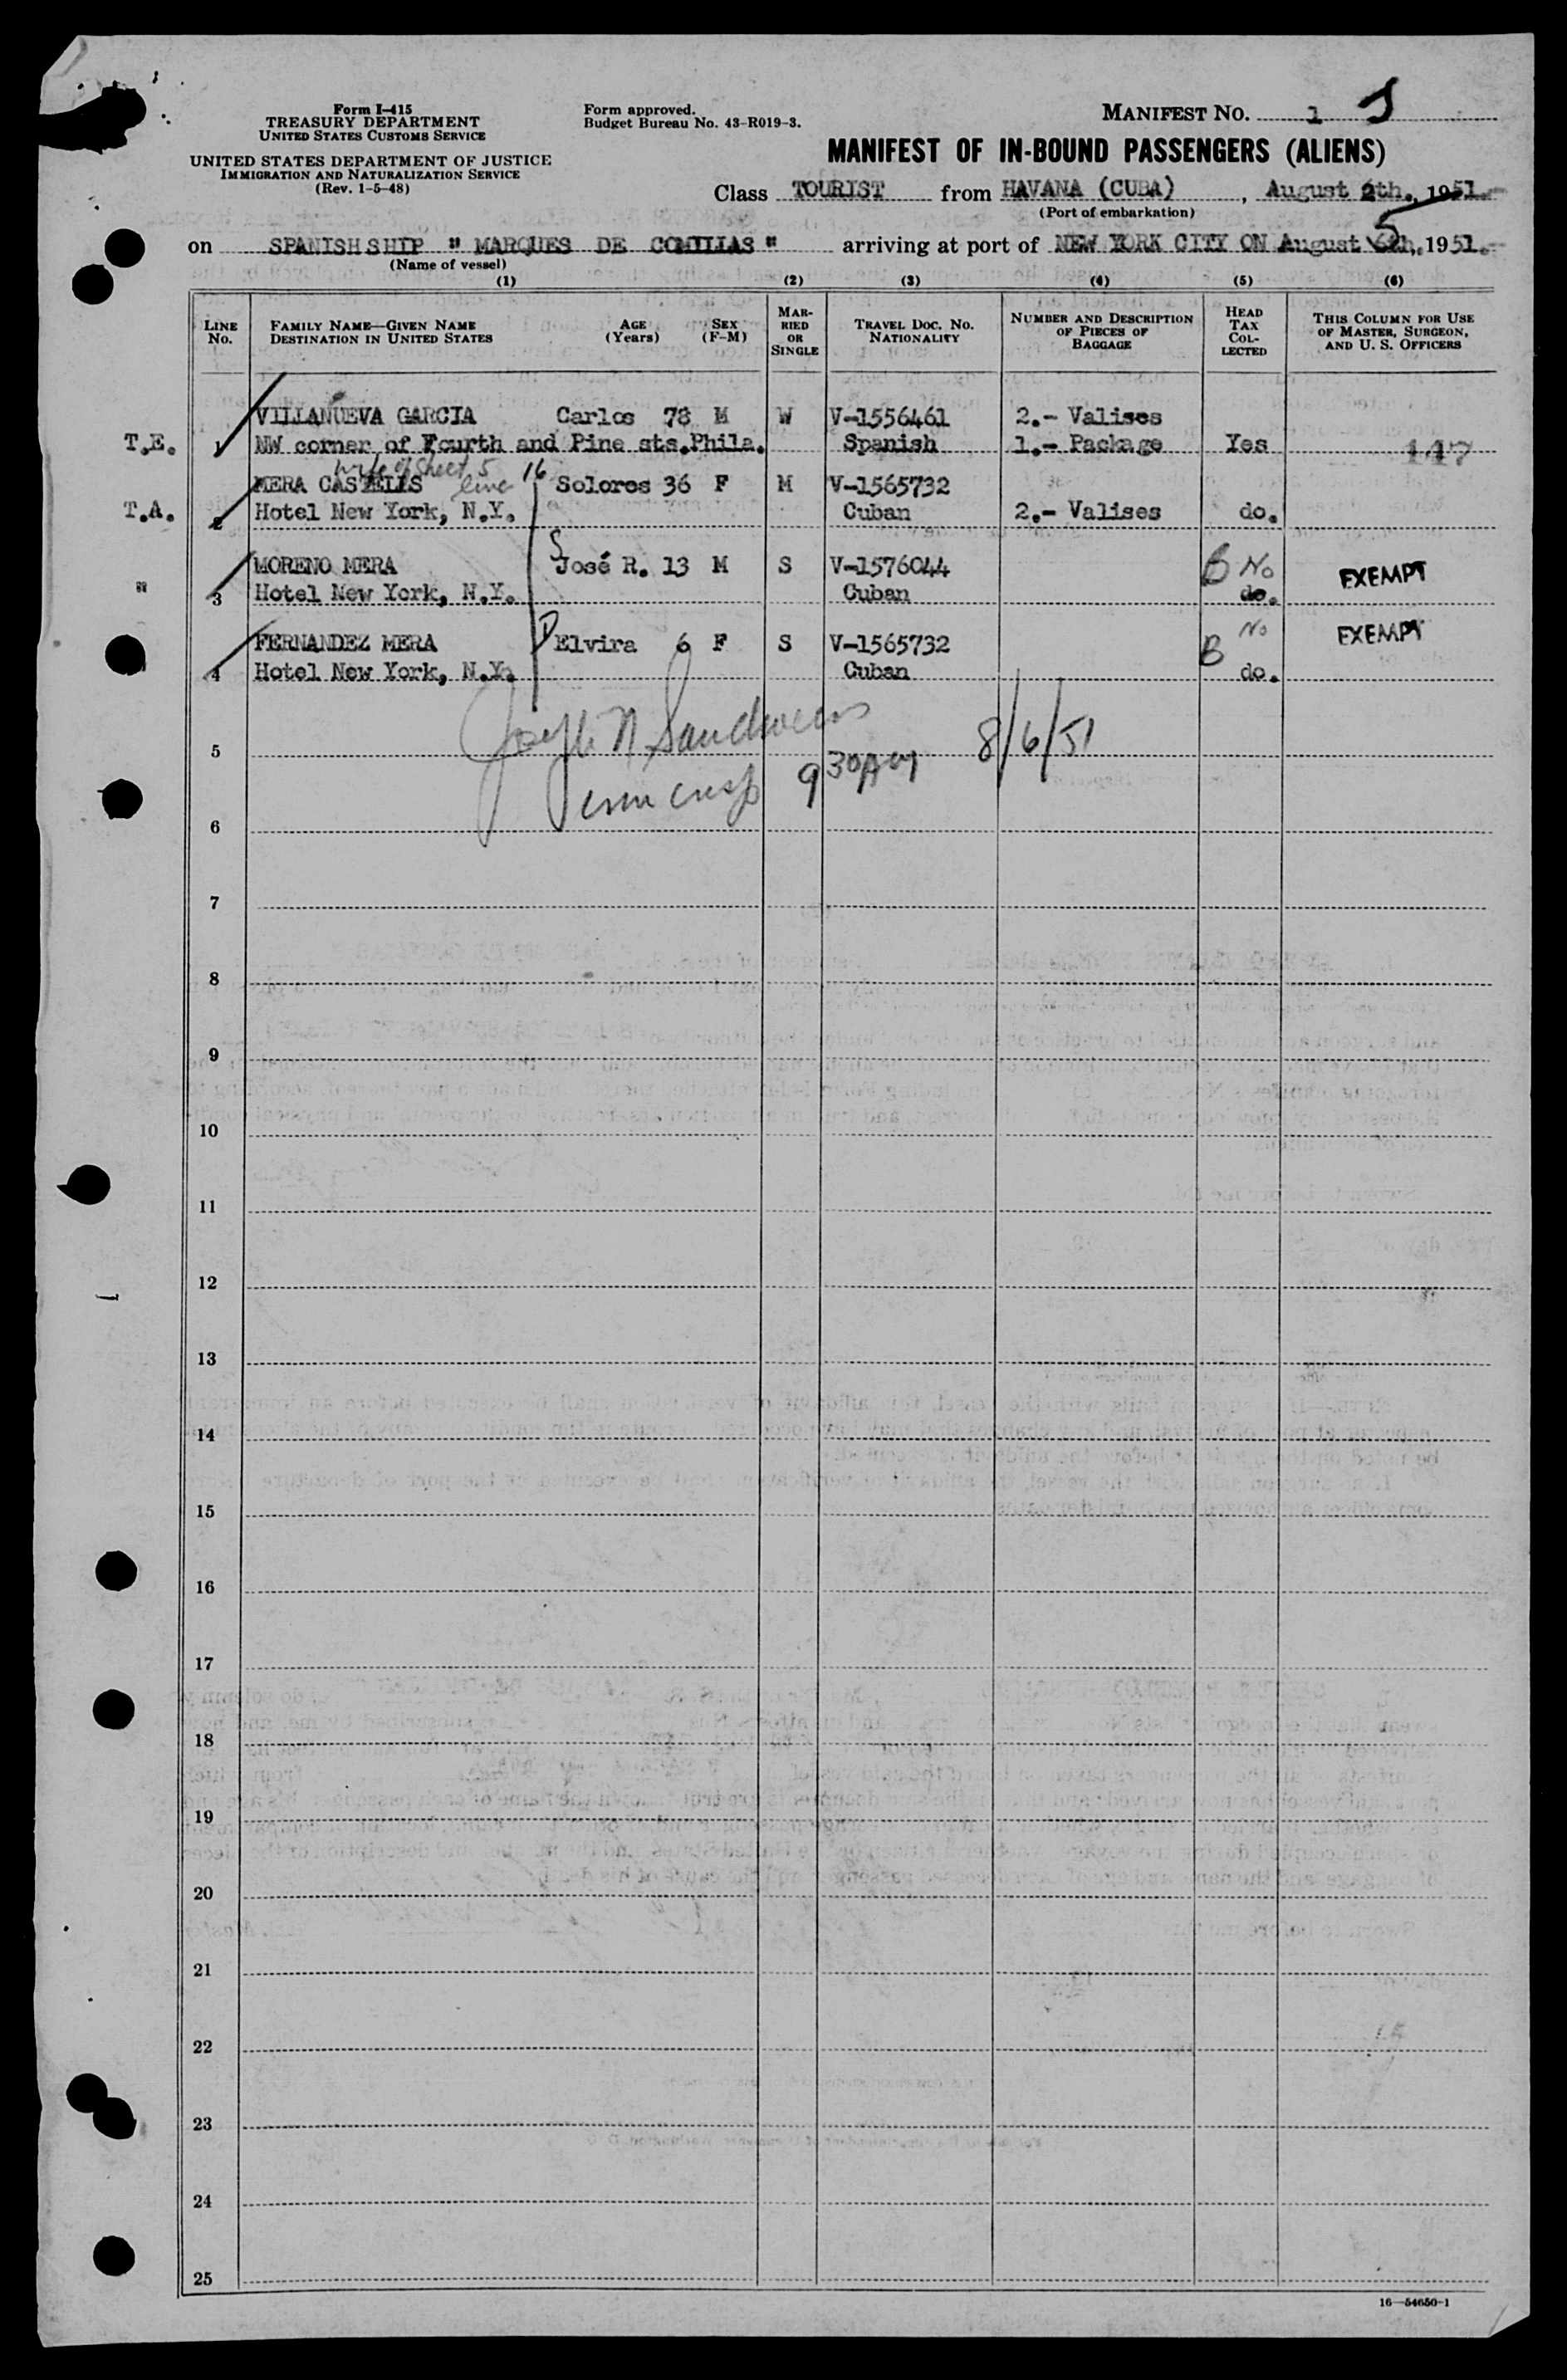 Form I-415
TREASURY DEPARTMENT
UNITED STATES CUSTOMS SERVICE
UNITED STATES DEPARTMENT OF JUSTICE
IMMIGRATION AND NATURALIZATION SERVICE
(Rev. 1-5-48)
Form approved.
Budget Bureau No. 43-R019-3.
MANIFEST No. 1
MANIFEST OF IN-BOUND PASSENGERS (ALIENS)
Class TOURIST from HAVANA (CUBA), August 2th., 1951.-
(Port of embarkation)
5
on SPANISH SHIP " MARQUES DE COMILLAS " arriving at port of NEW YORK CITY ON August 6th., 1951.-
(Name of vessel)
(1) (2) (3) (4) (5) (6)
LINE No.
FAMILY NAME—GIVEN NAME DESTINATION IN UNITED STATES
AGE (Years)
SEX (F-M)
MARRIED OR SINGLE
TRAVEL DOC. No. NATIONALITY
NUMBER AND DESCRIPTION OF PIECES OF BAGGAGE
HEAD TAX COLLECTED
THIS COLUMN FOR USE OF MASTER, SURGEON, AND U. S. OFFICERS
VILLANUEVA GARCIA Carlos 78 M W V-1556461 2.- Valises
T.E. 1 NW corner of Fourth and Pine sts.Phila. Spanish 1.- Package Yes 117
wife of Sheet 5 line 16
MERA CASTELLS Solores 36 F M V-1565732
T.A. 2 Hotel New York, N.Y. Cuban 2.- Valises do.
S
MORENO MERA José R. 13 M S V-1576044 B No EXEMPT
" 3 Hotel New York, N.Y. Cuban do.
D
FERNANDEZ MERA Elvira 6 F S V-1565732 B No EXEMPT
4 Hotel New York, N.Y. Cuban do.
Joseph N. 8/6/51
5
9 30 AM
6
7
8
9
10
11
12
13
14
15
16
17
18
19
20
21
22
23
24
25
16—54650-1